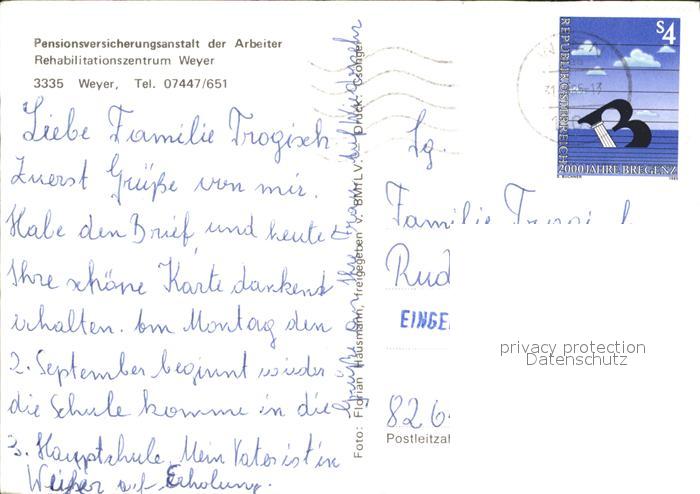 Pensionsversicherungsanstalt der Arbeiter
Rehabilitationszentrum Weyer
3335 Weyer, Tel. 07447/651
Liebe Familie Trogisch
Zuerst Grüße von mir.
Habe den Brief, und heute
Ihre schöne Karte dankend
erhalten. Am Montag den
2. September beginnt wieder
die Schule komme in die
3. Hauptschule. Mein Vater ist in
Weyer auf Erholung.
Grüße an Ihre Frau auf Wiedersehn
Foto: Florian Hausmann, freigegeben v. BMfLV. Druck: Csöngei
S4
REPUBLIK ÖSTERREICH
2000 JAHRE BREGENZ
1985
Fg.
Familie Trogisch
Rud
EINGE
826
Postleitzahl
privacy protection
Datenschutz